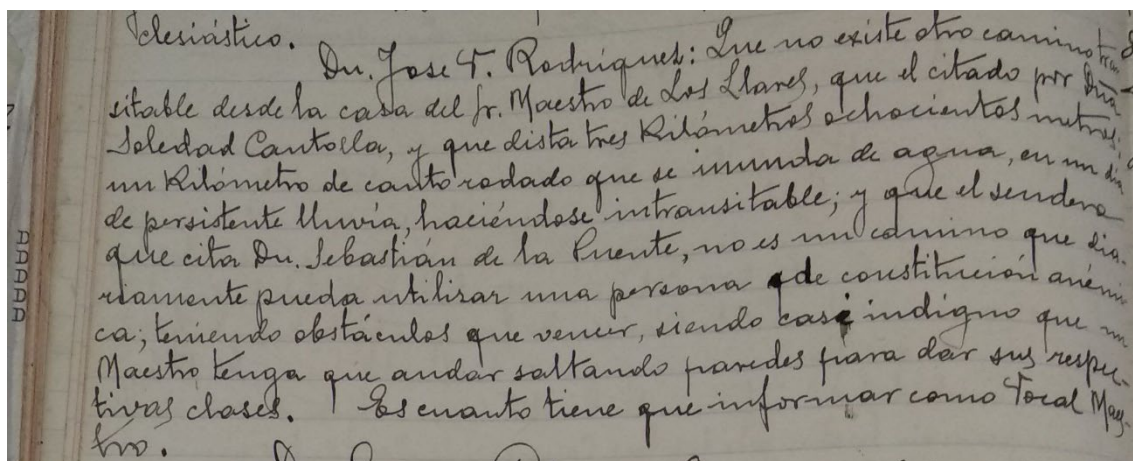 clesiástico.
Dn. Jose T. Rodriguez: Que no existe otro camino tran
sitable desde la casa del Sr. Maestro de Los Llares, que el citado por Dña
Soledad Cantolla, y que dista tres Kilómetros ochocientos metros;
un Kilómetro de canto rodado que se inunda de agua, en un dia
de persistente lluvia, haciéndose intransitable; y que el sendero
que cita Dn. Sebastián de la Puente, no es un camino que dia-
riamente pueda utilisar una persona de constitución anémi
ca; teniendo obstáculos que vencer, siendo casi indigno que un
Maestro tenga que andar saltando paredes para dar sus respec-
tivas clases. Es cuanto tiene que informar como Vocal Maes-
tro.
AAAAA